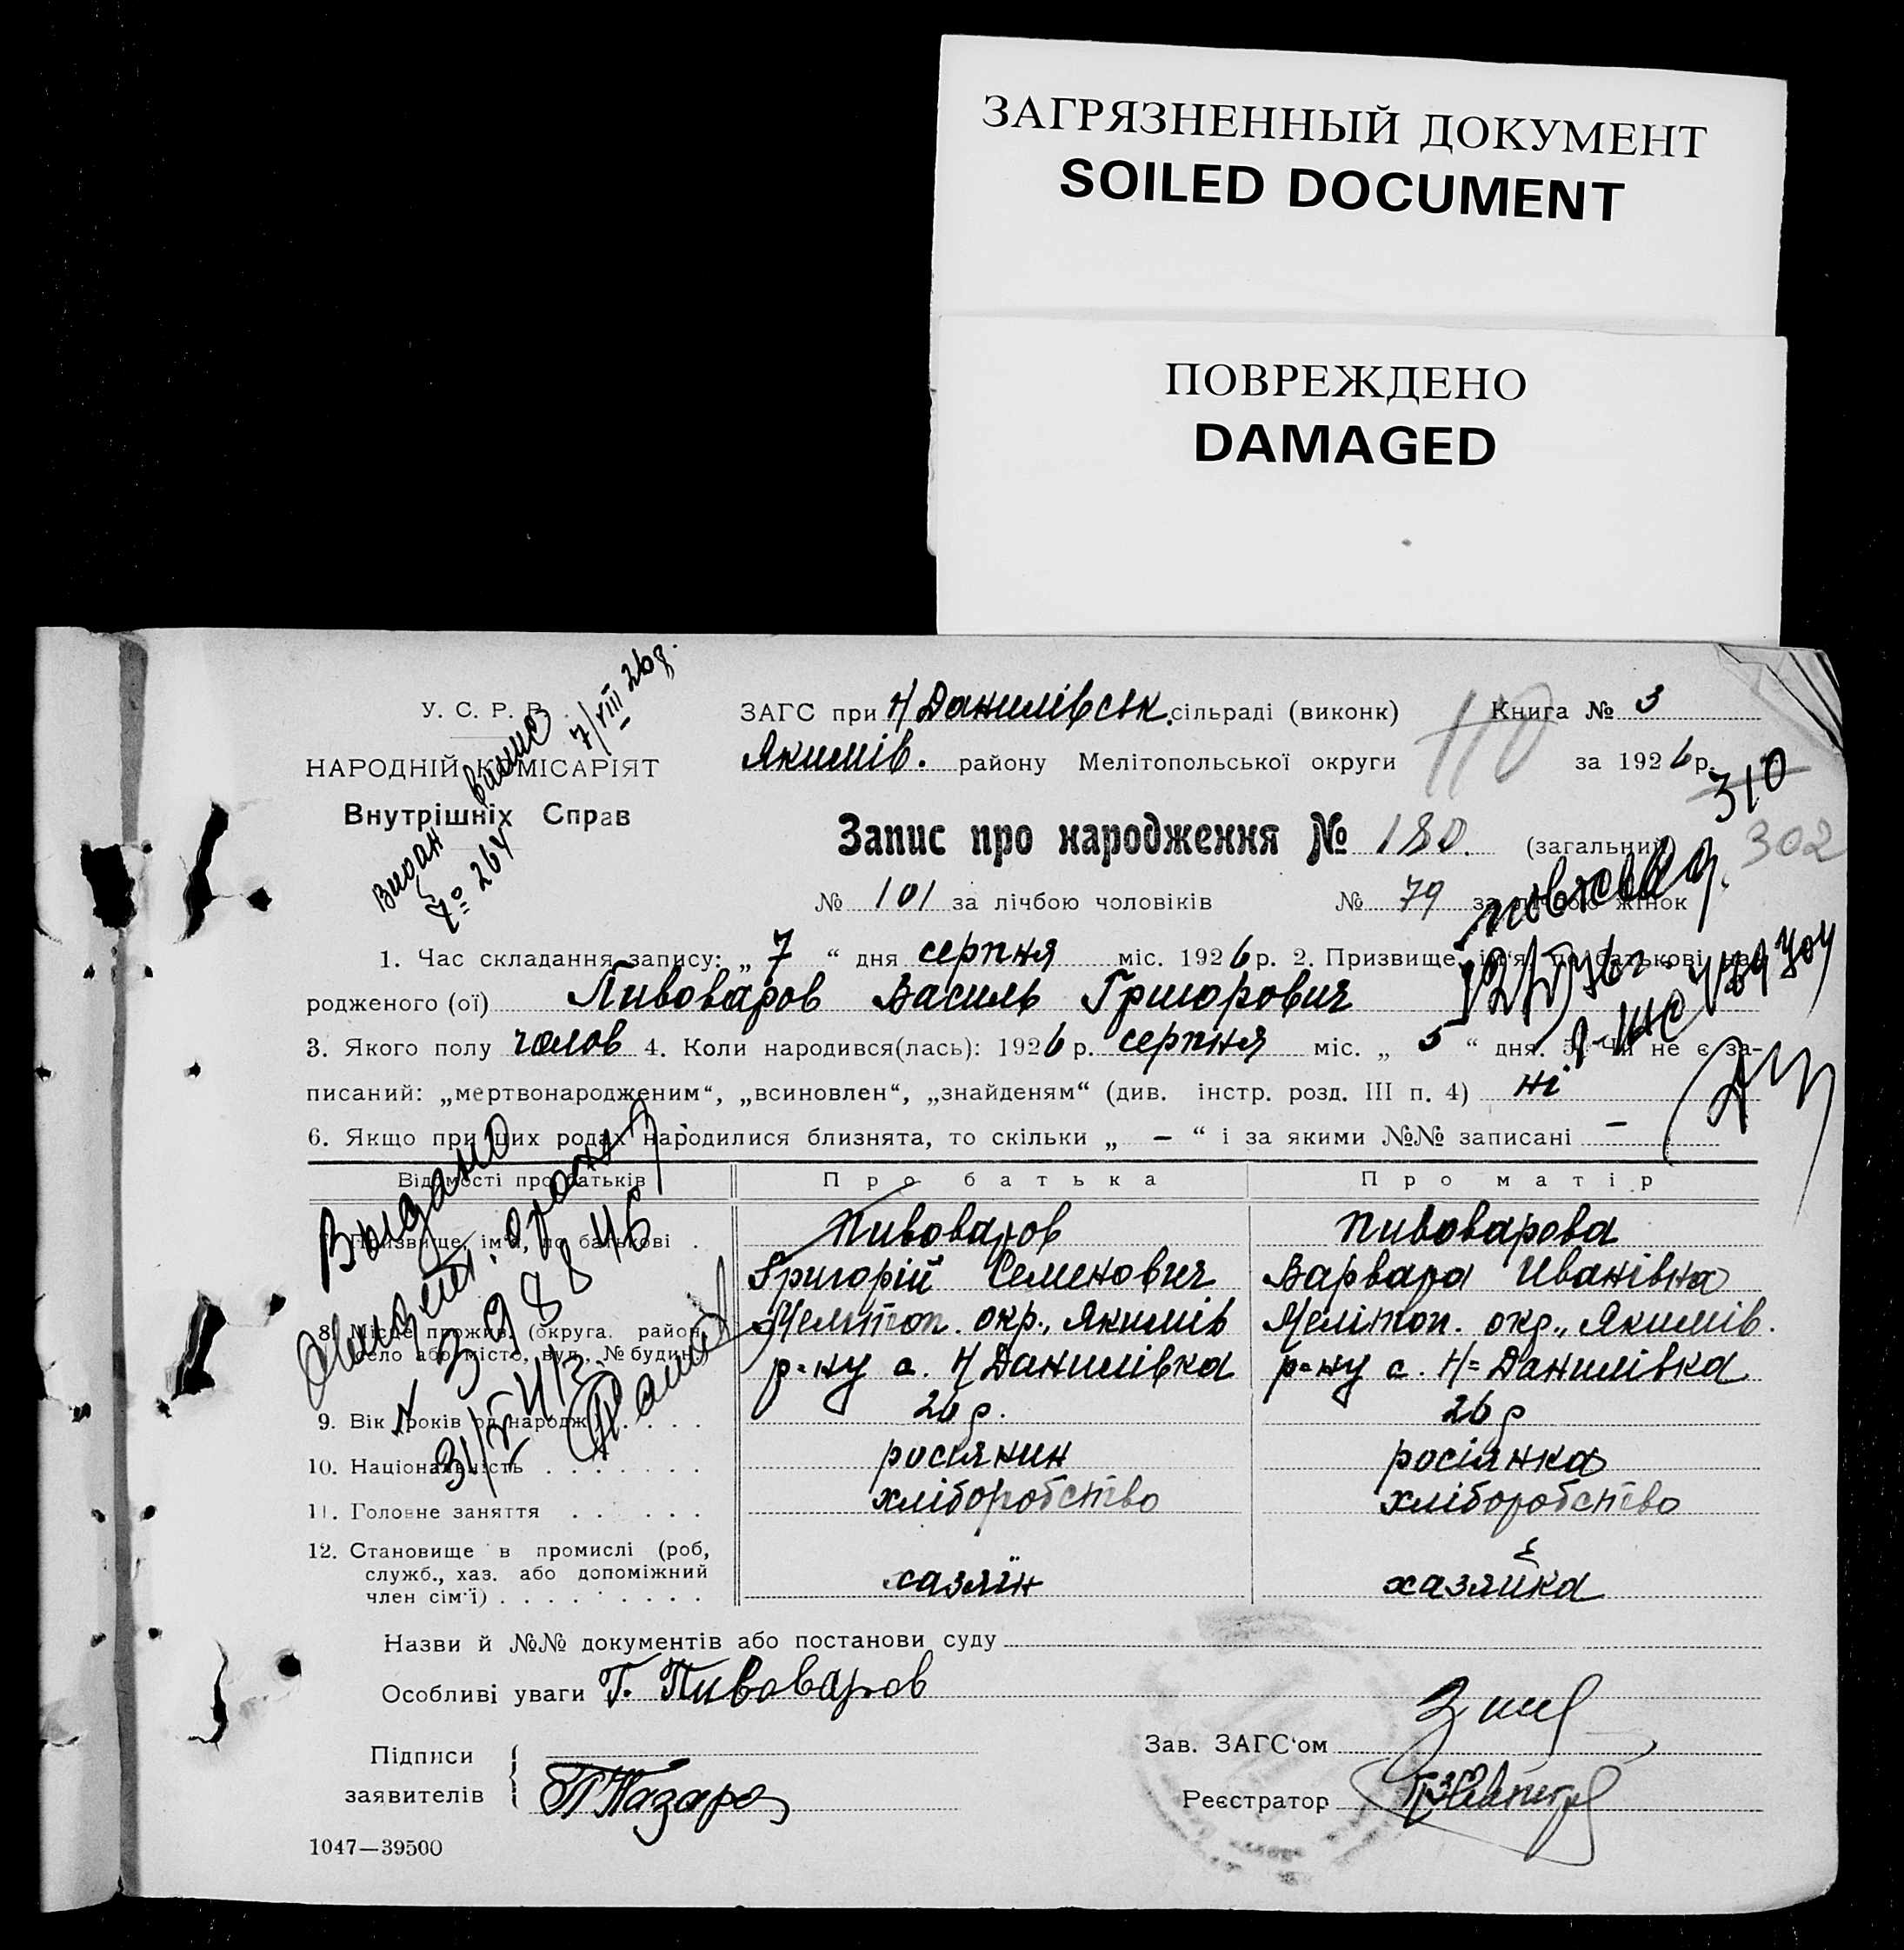 ЗАГРЯЗНЕННЫЙ ДОКУМЕНТ
SOILED DOCUMENT
ПОВРЕЖДЕНО
DAMAGED
У. С. Р. Р.
НАРОДНІЙ КОМІСАРІЯТ
Внутрішніх Справ
Видан виписЗ
7/VIII 26р.
№ 264
ЗАГС при Н Данилівськ. сільраді (виконк) Книга № 3
Якимів. району Мелітопольської округи за 1926 р.
110
310
302
Запис про народження № 180. (загальний)
№ 101 за лічбою чоловіків № 79 за лічбою жінок
1. Час складання запису: „ 7 “ дня серпня міс. 1926 р. 2. Призвище, ім'я, по батькові на-
родженого (ої) Пивоваров Василь Григорович
3. Якого полу чолов 4. Коли народився(лась): 1926 р. серпня міс. „ 5 “ дня. 5. Чи не є за-
писаний: „мертвонародженим“, „всиновлен“, „знайденям“ (див. інстр. розд. III п. 4) ні
6. Якщо при цих родах народилися близнята, то скільки „ – “ і за якими №№ записані –
Відомості про батьків Про батька Про матір
7. Призвище, ім'я, по батькові . Пивоваров Пивоварова
Григорій Семенович Варвара Иванівна
8. Місце прожив. (округа, район, Мелітоп. окр., Якимів Мелітоп. окр., Якимів.
село або місто, вул., № будин.) р-ну с. Н Данилівка р=ну с. Н=Данилівка
9. Вік років од народж. 26 р. 26 р
10. Національність росіянин росіянка
11. Головне заняття хліборобство хліборобство
12. Становище в промислі (роб,
служб., хаз. або допоміжний
член сім'ї) хазяїн хазяйка
Выдано
398846
Назви й №№ документів або постанови суду
Особливі уваги Г. Пивоваров
Підписи
заявителів
Зав. ЗАГС'ом
Реєстратор
1047—39500